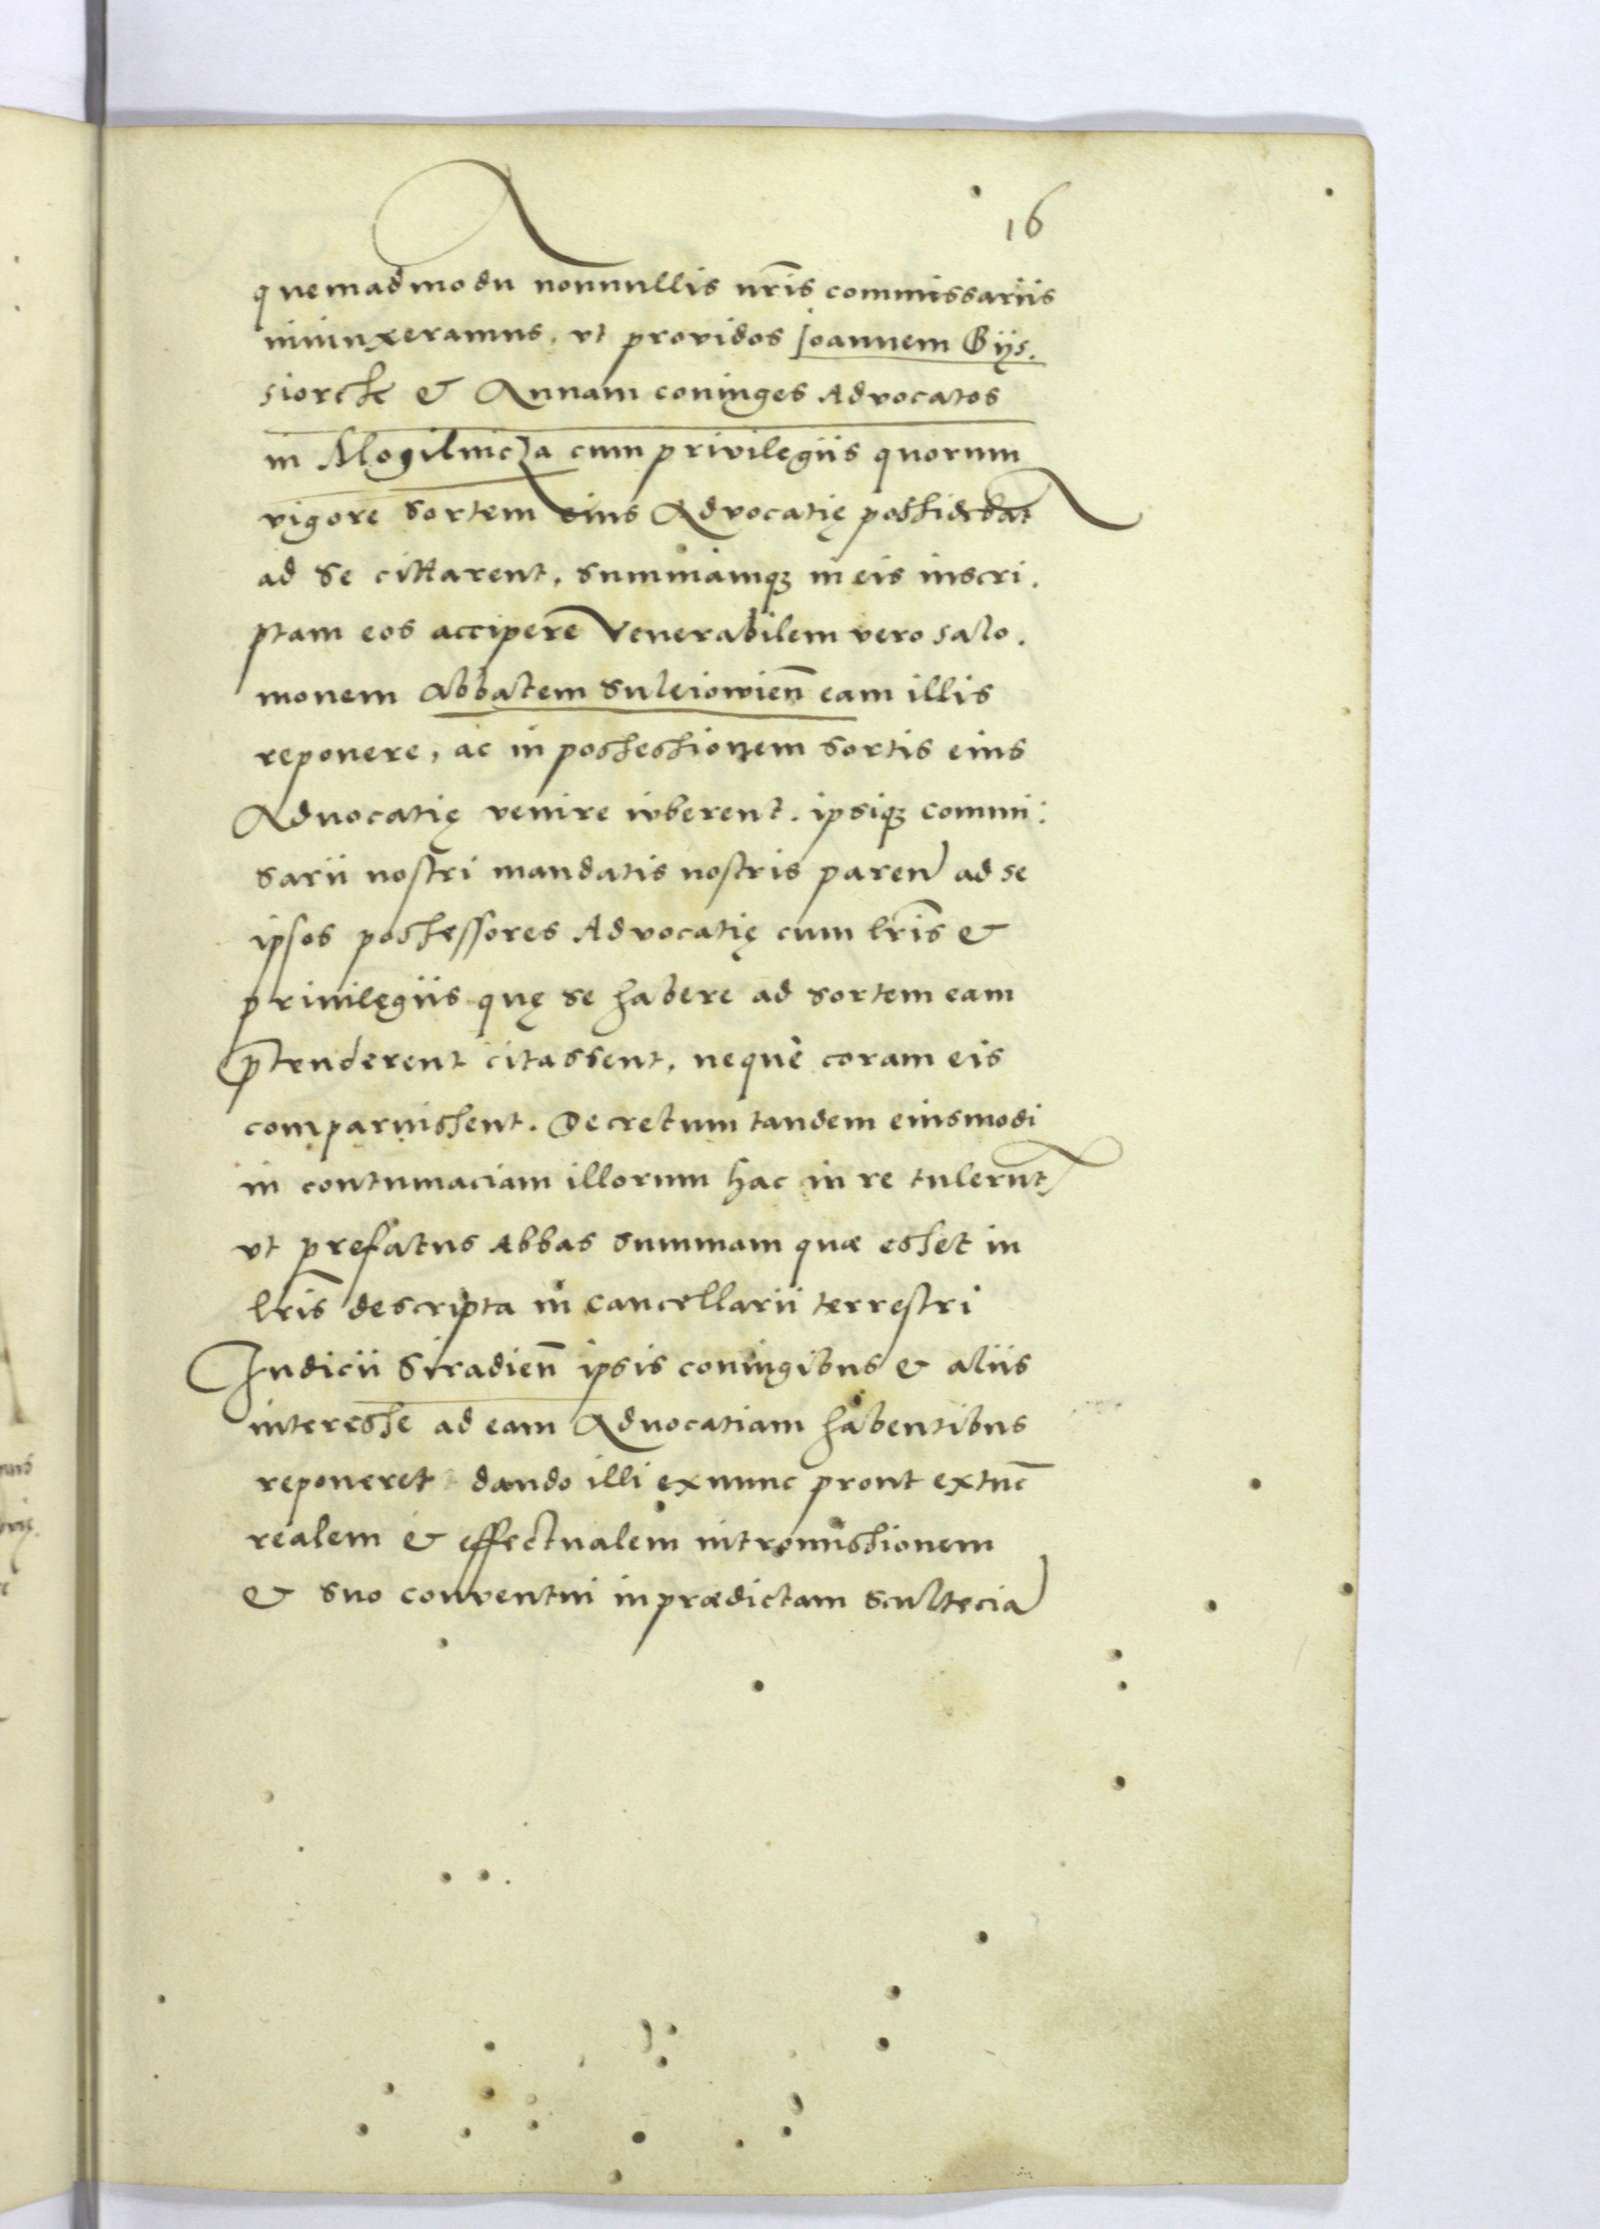 16
quemadmodu nonnullis nr̃is commissariis
iniunxeramus, ut providos Joannem Gijs.
siorek & Annam coniuges Advocatos
in Mogilnicza cum privilegiis quorum
vigore sortem eius Advocatię possidebat
ad se cittarent, summamq; in eis inscri.
ptam eos accipere Venerabilem vero salo.
monem Abbatem Suleiowieñ eam illis
reponere, ac in possessionem sortis eius
Aduocatię venire iuberent. ipsiq; commi:
sarii nostri mandatis nostris paren ad se
ipsos possessores Advocatię cum lr̃is &
priuilęgiis quę se habere ad sortem eam
p̃tenderent citassent, neque coram eis
comparuissent. Decretum tandem eiusmodi
in contumaciam illorum hac in re tulerunt
ut prefatus Abbas summam quæ esset in
lr̃is descripta in cancellarii terrestri
Iudicii Siradieñ ipsis coniugibus & aliis
interesse ad eam Aduocatiam habentibus
reponeret dando illi exnunc prout extũc
realem & effectualem intromissionem
& suo conventui in prædictam scultecia